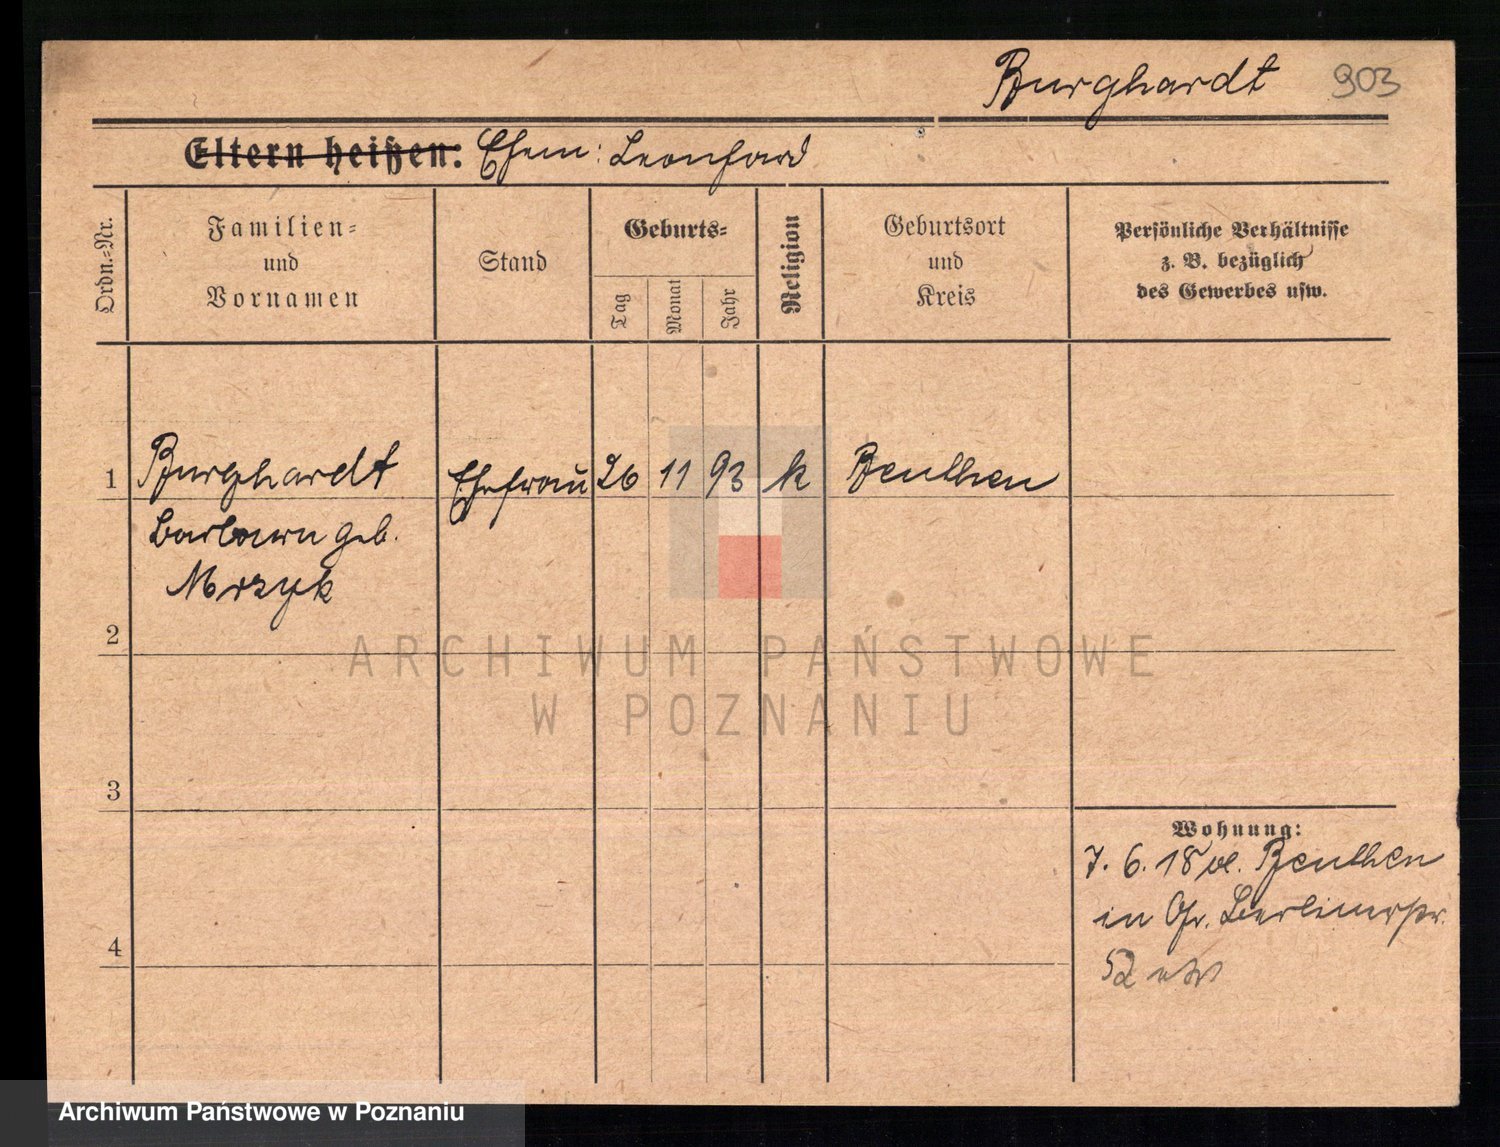 Burghardt 903
Eltern heißen: Ehem: Leonhard
Ordn.=Nr.
Familien=
und
Vornamen
Stand
Geburts=
Tag
Monat
Jahr
Religion
Geburtsort
und
Kreis
Persönliche Verhältnisse
z. B. bezüglich
des Gewerbes usw.
1 Burghardt Ehefrau 26 11 93 k Beuthen
Barbara geb.
Mrzyk
2
ARCHIWUM PAŃSTWOWE
W POZNANIU
3
Wohnung:
7. 6. 18 Beuthen
in Gr. Berlinerstr.
4
52
Archiwum Państwowe w Poznaniu